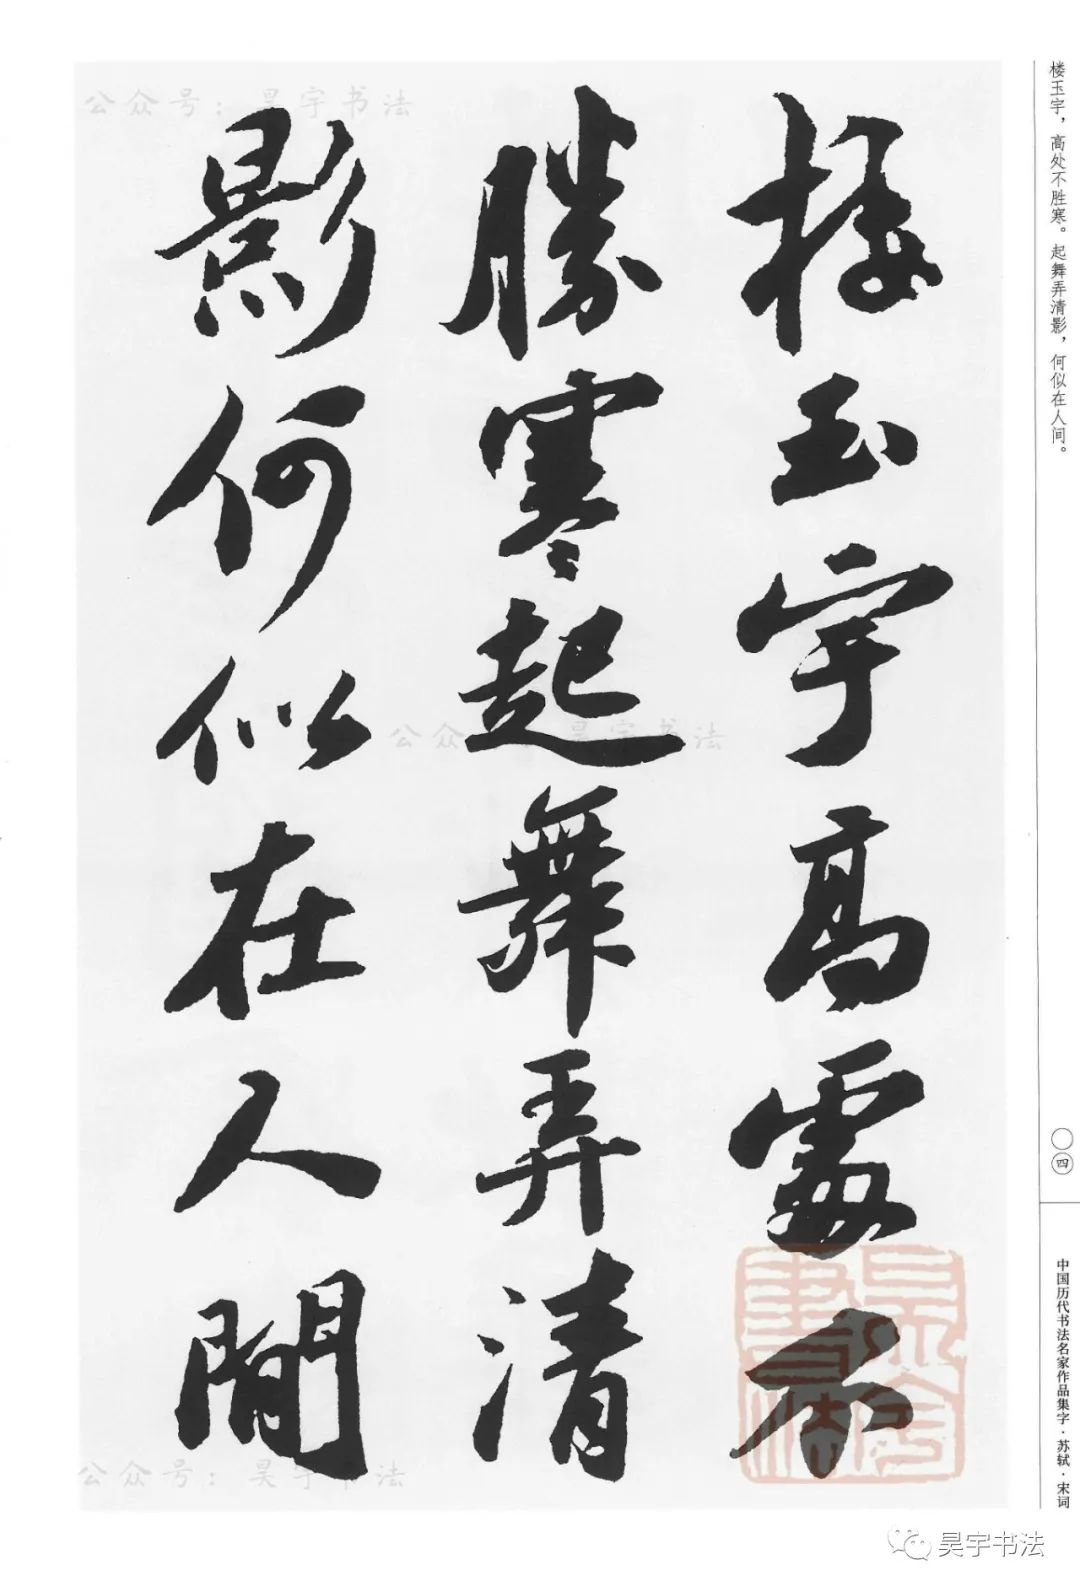 楼玉宇，高处不胜寒。起舞弄清影，何似在人间。
楼玉宇高處不
勝寒起舞弄清
影何似在人間
〇四
中国历代书法名家作品集字·苏轼·宋词
公众号：昊宇书法
公众号：昊宇书法
公众号：昊宇书法
昊宇書法
昊宇书法